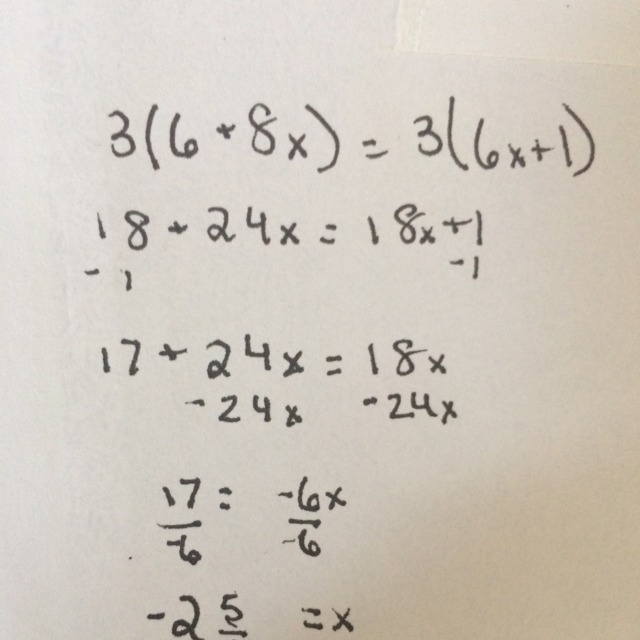 3(6+8x) = 3(6x+1)
18+24x = 18x+1
-1 -1
17+24x = 18x
-24x -24x
17 = -6x
-6 -6
-2 5 = x